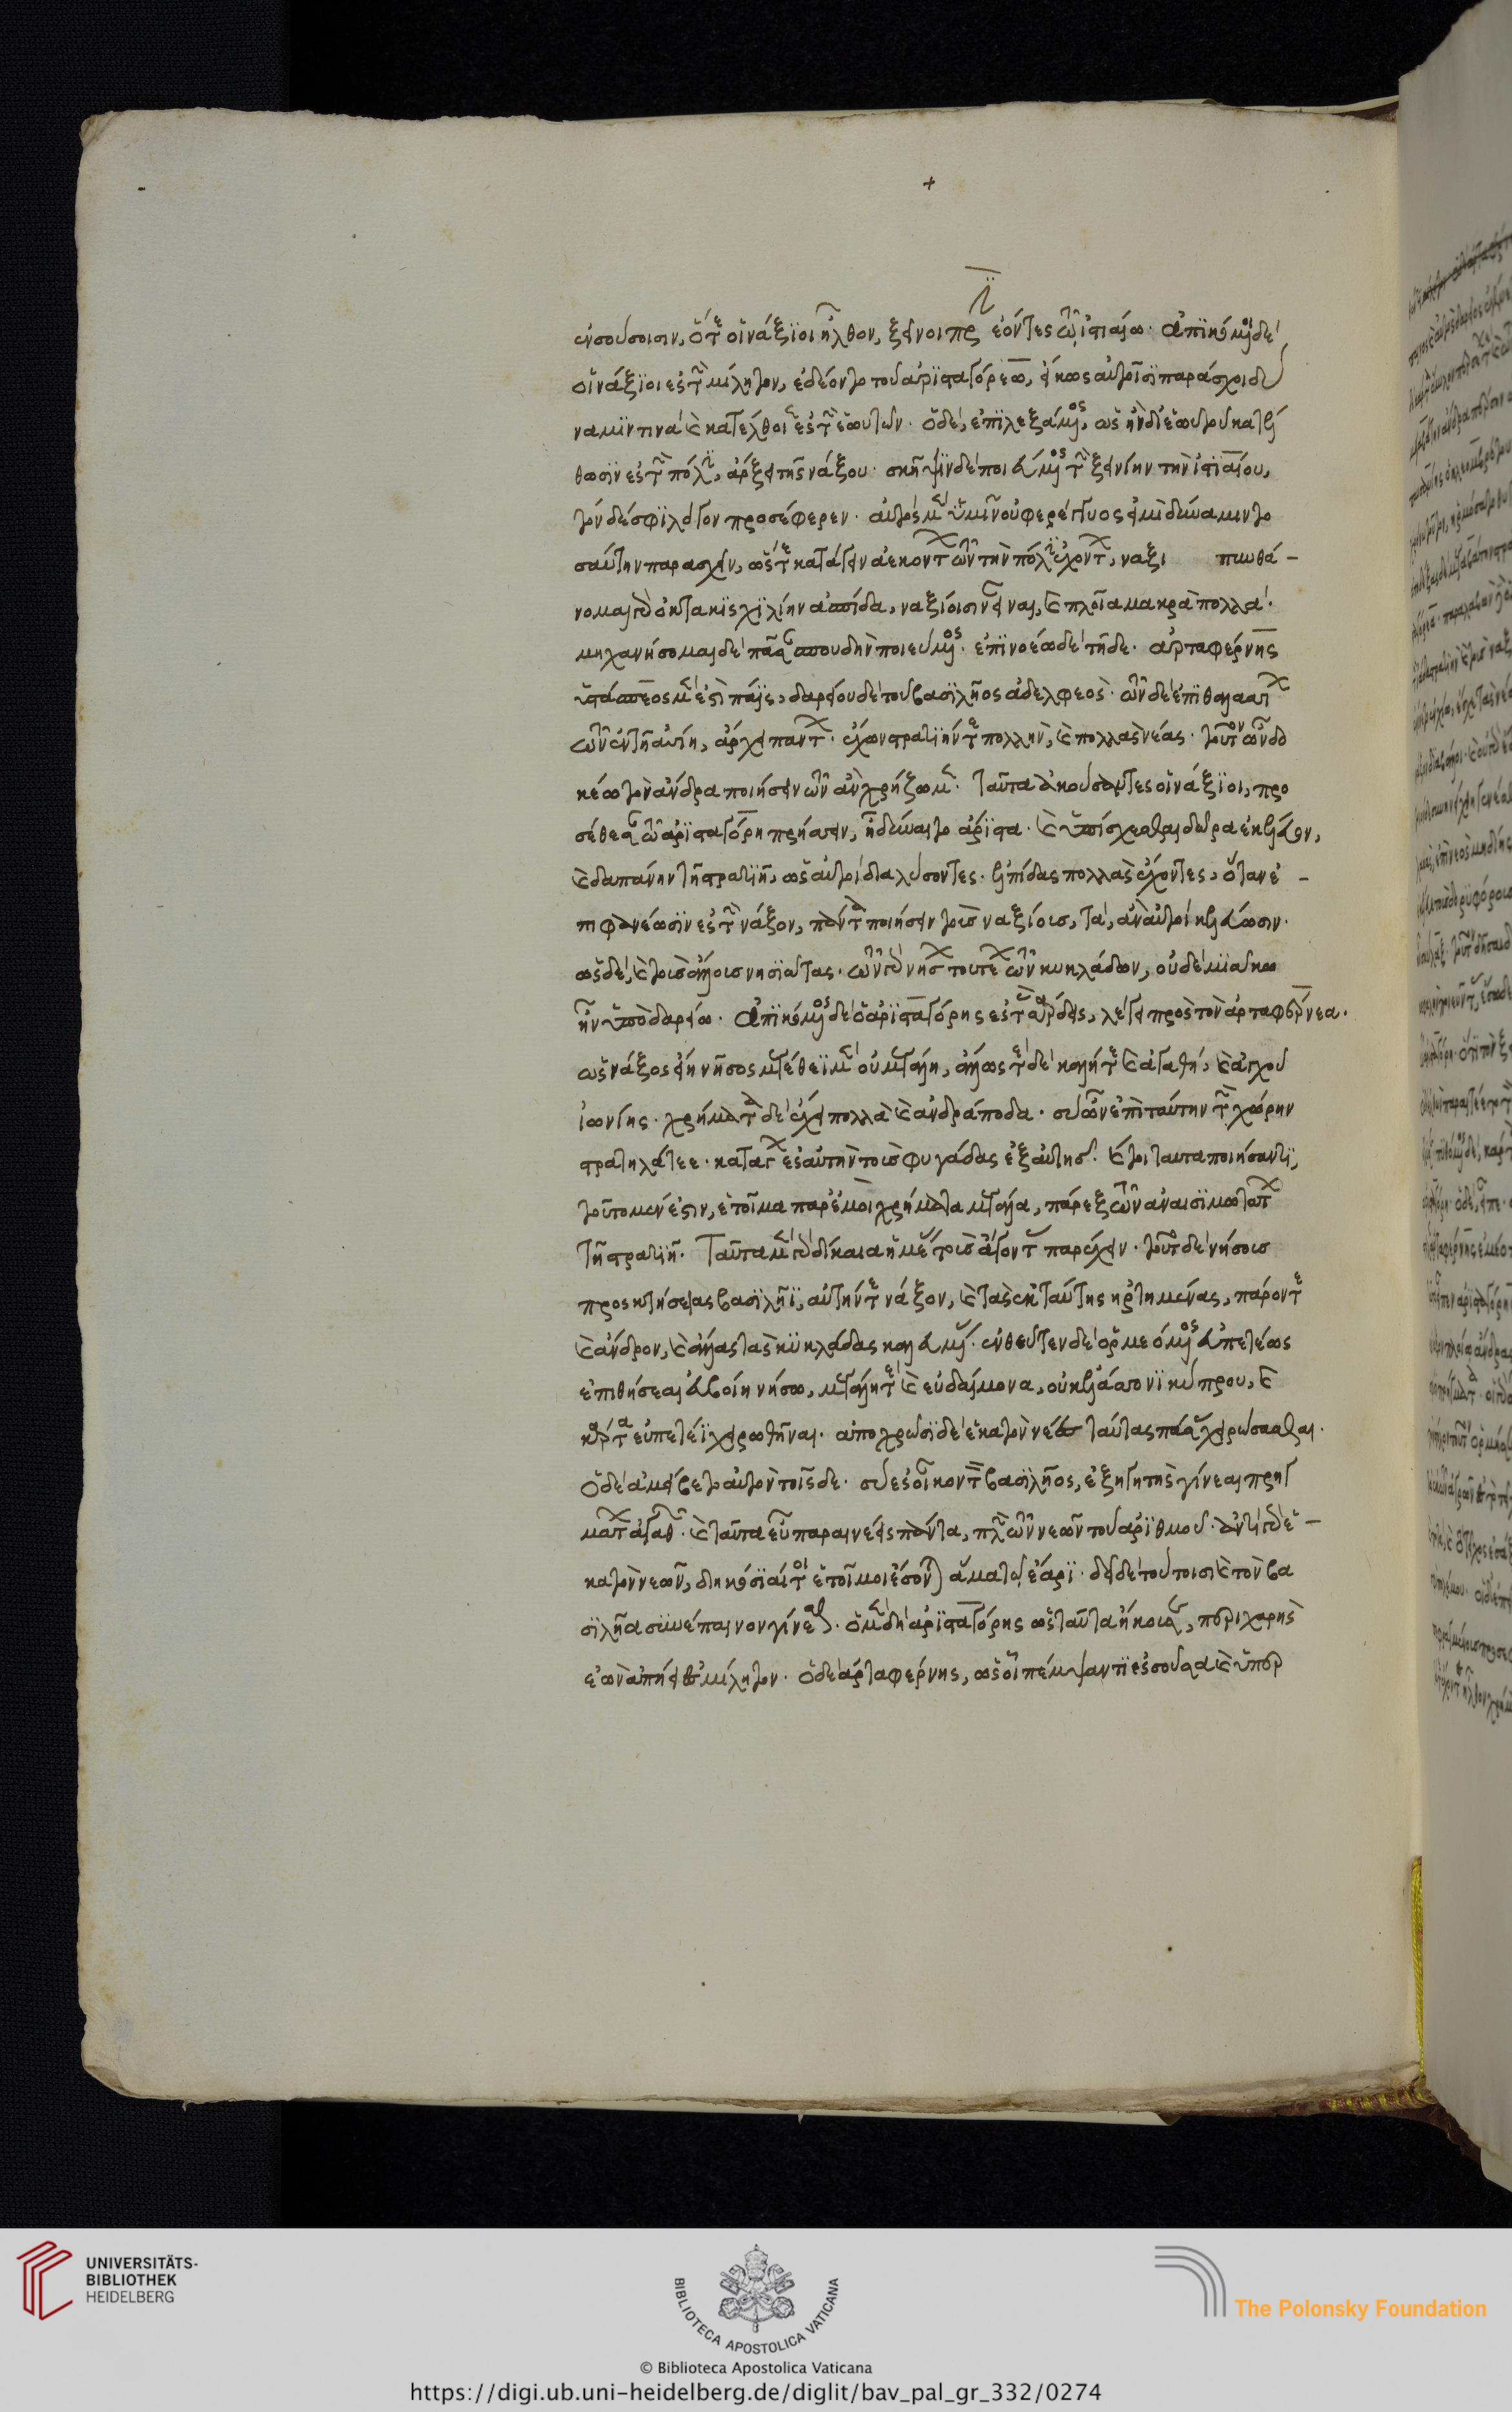 +
ἐν σούσοισιν, ὅτε οἱ νάξιοι ἦλθον, ξεῖνοι πρ ἐόντες τῶ ἱστιαίω. ἀπικόμενοι δὲ
οἱ νάξιοι ἐς τὴν μίλητον, ἐδέοντο τοῦ ἀρισταγόρεω, εἴκως αὐτοῖσι παράσχοι δύ
ναμιν τινὰ καὶ κατέλθοιεν ἐς τὴν ἑωυτῶν. ὁ δὲ, ἐπιλεξάμενος, ὡς ἢν δι' ἑωυτοῦ κατέλ
θωσιν ἐς τὴν πόλιν, ἄρξει τῆς νάξου. σκῆψιν δὲ ποιεύμενος τὴν ξεινίην τὴν ἱστιαίου,
τόνδε σφι λόγον προσέφερεν. αὐτὸς μὲν ὑμῖν οὐ φερέγγυος εἰμὶ δύναμιν το
σαύτην παρασχεῖν, ὥστε κατάγειν ἀεκόντων τῶν τὴν πόλιν ἐχόντων, ναξι πυνθά-
νομαι γὰρ ὀκτακισχιλίην ἀσπίδα, ναξίοισιν εἶναι, καὶ πλοῖα μακρὰ πολλά.
μηχανήσομαι δὲ πᾶσαν σπουδὴν ποιεύμενος. ἐπινοέω δὲ τῆδε. ἀρταφέρνης
ὑστάσπεος μέν ἐστι παῖς, δαρείου δὲ τοῦ βασιλῆος ἀδελφεός. τῶν δὲ ἐπιθαλασσίων
τῶν ἐν τῆ ἀσίη, ἄρχει πάντων. ἔχων στρατιήν τε πολλὴν, καὶ πολλὰς νέας. τοῦτον ὦν δο
κέω τὸν ἄνδρα ποιήσειν τῶν ἂν χρήζωμεν. ταῦτα ἀκούσαντες οἱ νάξιοι, προ
σέθεσαν τῶ ἀρισταγόρη πρήσσειν, ἣ δύναιτο ἄριστα. καὶ ὑπίσχεσθαι δῶρα ἐκέλευον,
καὶ δαπάνην τῆ στρατιῆ, ὡς αὐτοὶ διαλύσοντες. ἐλπίδας πολλὰς ἔχοντες, ὅταν ἐ-
πιφανέωσιν ἐς τὴν νάξον, πάντα ποιήσειν τοὺς ναξίους, τὰ, ἂν αὐτοὶ κελεύωσιν.
ὣς δὲ, καὶ τοὺς ἄλλους νησιώτας. τῶν γὰρ νήσων τουτέων τῶν κυκλάδων, οὐδεμία κω
ἦν ὑπὸ δαρείω. ἀπικόμενος δὲ ὁ ἀρισταγόρης ἐς τὰς σάρδεις, λέγει πρὸς τὸν ἀρταφέρνεα.
ὡς νάξος εἴη νῆσος μεγέθεϊ μὲν οὐ μεγάλη, ἄλλως τε δὲ καλή τε καὶ ἀγαθή, καὶ ἀγχοῦ
ἰωνίης. χρήματα δὲ ἔχει πολλὰ καὶ ἀνδράποδα. σὺ ὦν ἐπὶ ταύτην τὴν χώρην
στρατηλάτεε. κατάγων ἐς αὐτὴν τοὺς φυγάδας ἐξ αὐτῆς. καί τοι ταῦτα ποιήσαντι,
τοῦτο μέν ἐστιν, ἑτοῖμα παρ' ἐμοὶ χρήματα μεγάλα, πάρεξ τῶν ἀναισιμωμάτων
τῆ στρατιῆ. ταῦτα μὲν γὰρ δίκαια ἡμέας τοὺς ἄγοντας παρέχειν. τοῦτο δὲ νήσους
προσκτήσεαι βασιλῆϊ, αὐτήν τε νάξον, καὶ τὰς ἐκ ταύτης ἠρτημένας, πάρον τε
καὶ ἄνδρον, καὶ ἄλλας τὰς κυκλάδας καλευμένας. ἐνθεῦτεν δὲ ὁρμεόμενος εὐπετέως
ἐπιθήσεαι εὐβοίη νήσω, μεγάλη τε καὶ εὐδαίμονι, οὐκ ἐλάσσονι κύπρου, καὶ
κάρτα εὐπετέϊ αἱρεθῆναι. ἀποχρῶσι δὲ ἑκατὸν νέες ταύτας πάσας χειρώσασθαι.
ὁ δὲ ἀμείβετο αὐτὸν τοῖσδε. σὺ ἐς οἶκον τὸν βασιλῆος, ἐξηγητὴς γίνεαι πρηγ
μάτων ἀγαθῶν. καὶ ταῦτα εὖ παραινέεις πάντα, πλὴν τῶν νεῶν τοῦ ἀριθμοῦ. ἀντὶ γὰρ ἑ-
κατὸν νεῶν, διηκόσιαί τοι ἑτοῖμοι ἔσονται ἅμα τῶ ἔαρι. δεῖ δὲ τούτοισι καὶ τὸν βα
σιλῆα συνέπαινον γίνεσθαι. ὁ μὲν δὴ ἀρισταγόρης ὡς ταῦτα ἤκουσε, περιχαρὴς
ἐὼν ἀπήει ἐς μίλητον. ὁ δὲ ἀρταφέρνης, ὥς οἱ πέμψαντι ἐς σοῦσα καὶ ὑπερ
UNIVERSITÄTS-
BIBLIOTHEK
HEIDELBERG
BIBLIOTECA APOSTOLICA VATICANA
The Polonsky Foundation
© Biblioteca Apostolica Vaticana
https://digi.ub.uni-heidelberg.de/diglit/bav_pal_gr_332/0274